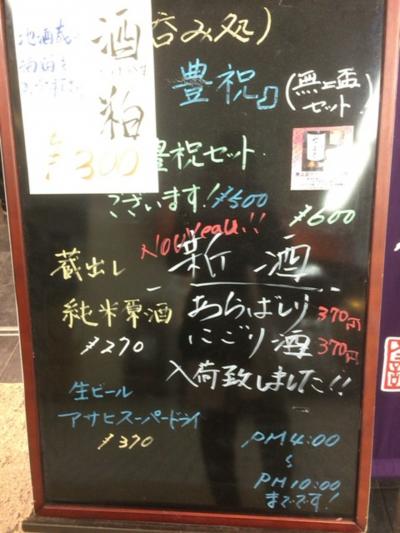 呑み処)
酒粕
300
豊祝』
(無上盃
セット)
豊祝セット
ございます! ¥500
¥600
Nouveau!!
新酒
蔵出し
純米原酒
¥270
あらばしり 370円
にごり酒 370円
入荷致しました!!
生ビール
アサヒスーパードライ
¥370
PM4:00
~
PM10:00
までです!